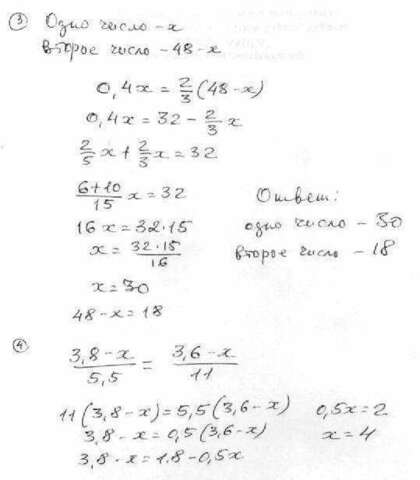 ③ Одно число - x
второе число - 48-x
0,4x = 2/3 (48-x)
0,4x = 32 - 2/3 x
2/5 x + 2/3 x = 32
6+10/15 x = 32
16x = 32·15
x = 32·15/16
x = 30
48-x = 18
Ответ:
одно число - 30
второе число - 18
④
3,8-x/5,5 = 3,6-x/11
11(3,8-x) = 5,5(3,6-x)
3,8-x = 0,5(3,6-x)
3,8-x = 1,8-0,5x
0,5x = 2
x = 4